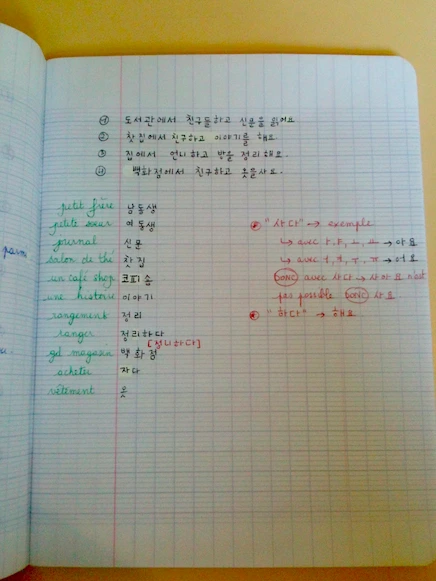 ① 도서관에서 친구들하고 신문을 읽어요
② 찻집에서 친구하고 이야기를 해요.
③ 집에서 언니하고 방을 정리해요.
④ 백화점에서 친구하고 옷을사요.
petit frère 남동생
petite soeur 여동생
journal 신문
salon de thé 찻집
un café shop 코피숍
une histoire 이야기
rangement 정리
ranger 정리하다
[정니하다]
gd magasin 백화점
acheter 자다
vêtement 옷
"사다" → exemple
↳ avec ㅏ,ㅑ,ㅗ,ㅛ → 아요
↳ avec ㅓ,ㅕ,ㅜ,ㅠ → 어요
DONC avec 사다 → 사아요 n'est
pas possible DONC 사요
"하다" → 해요